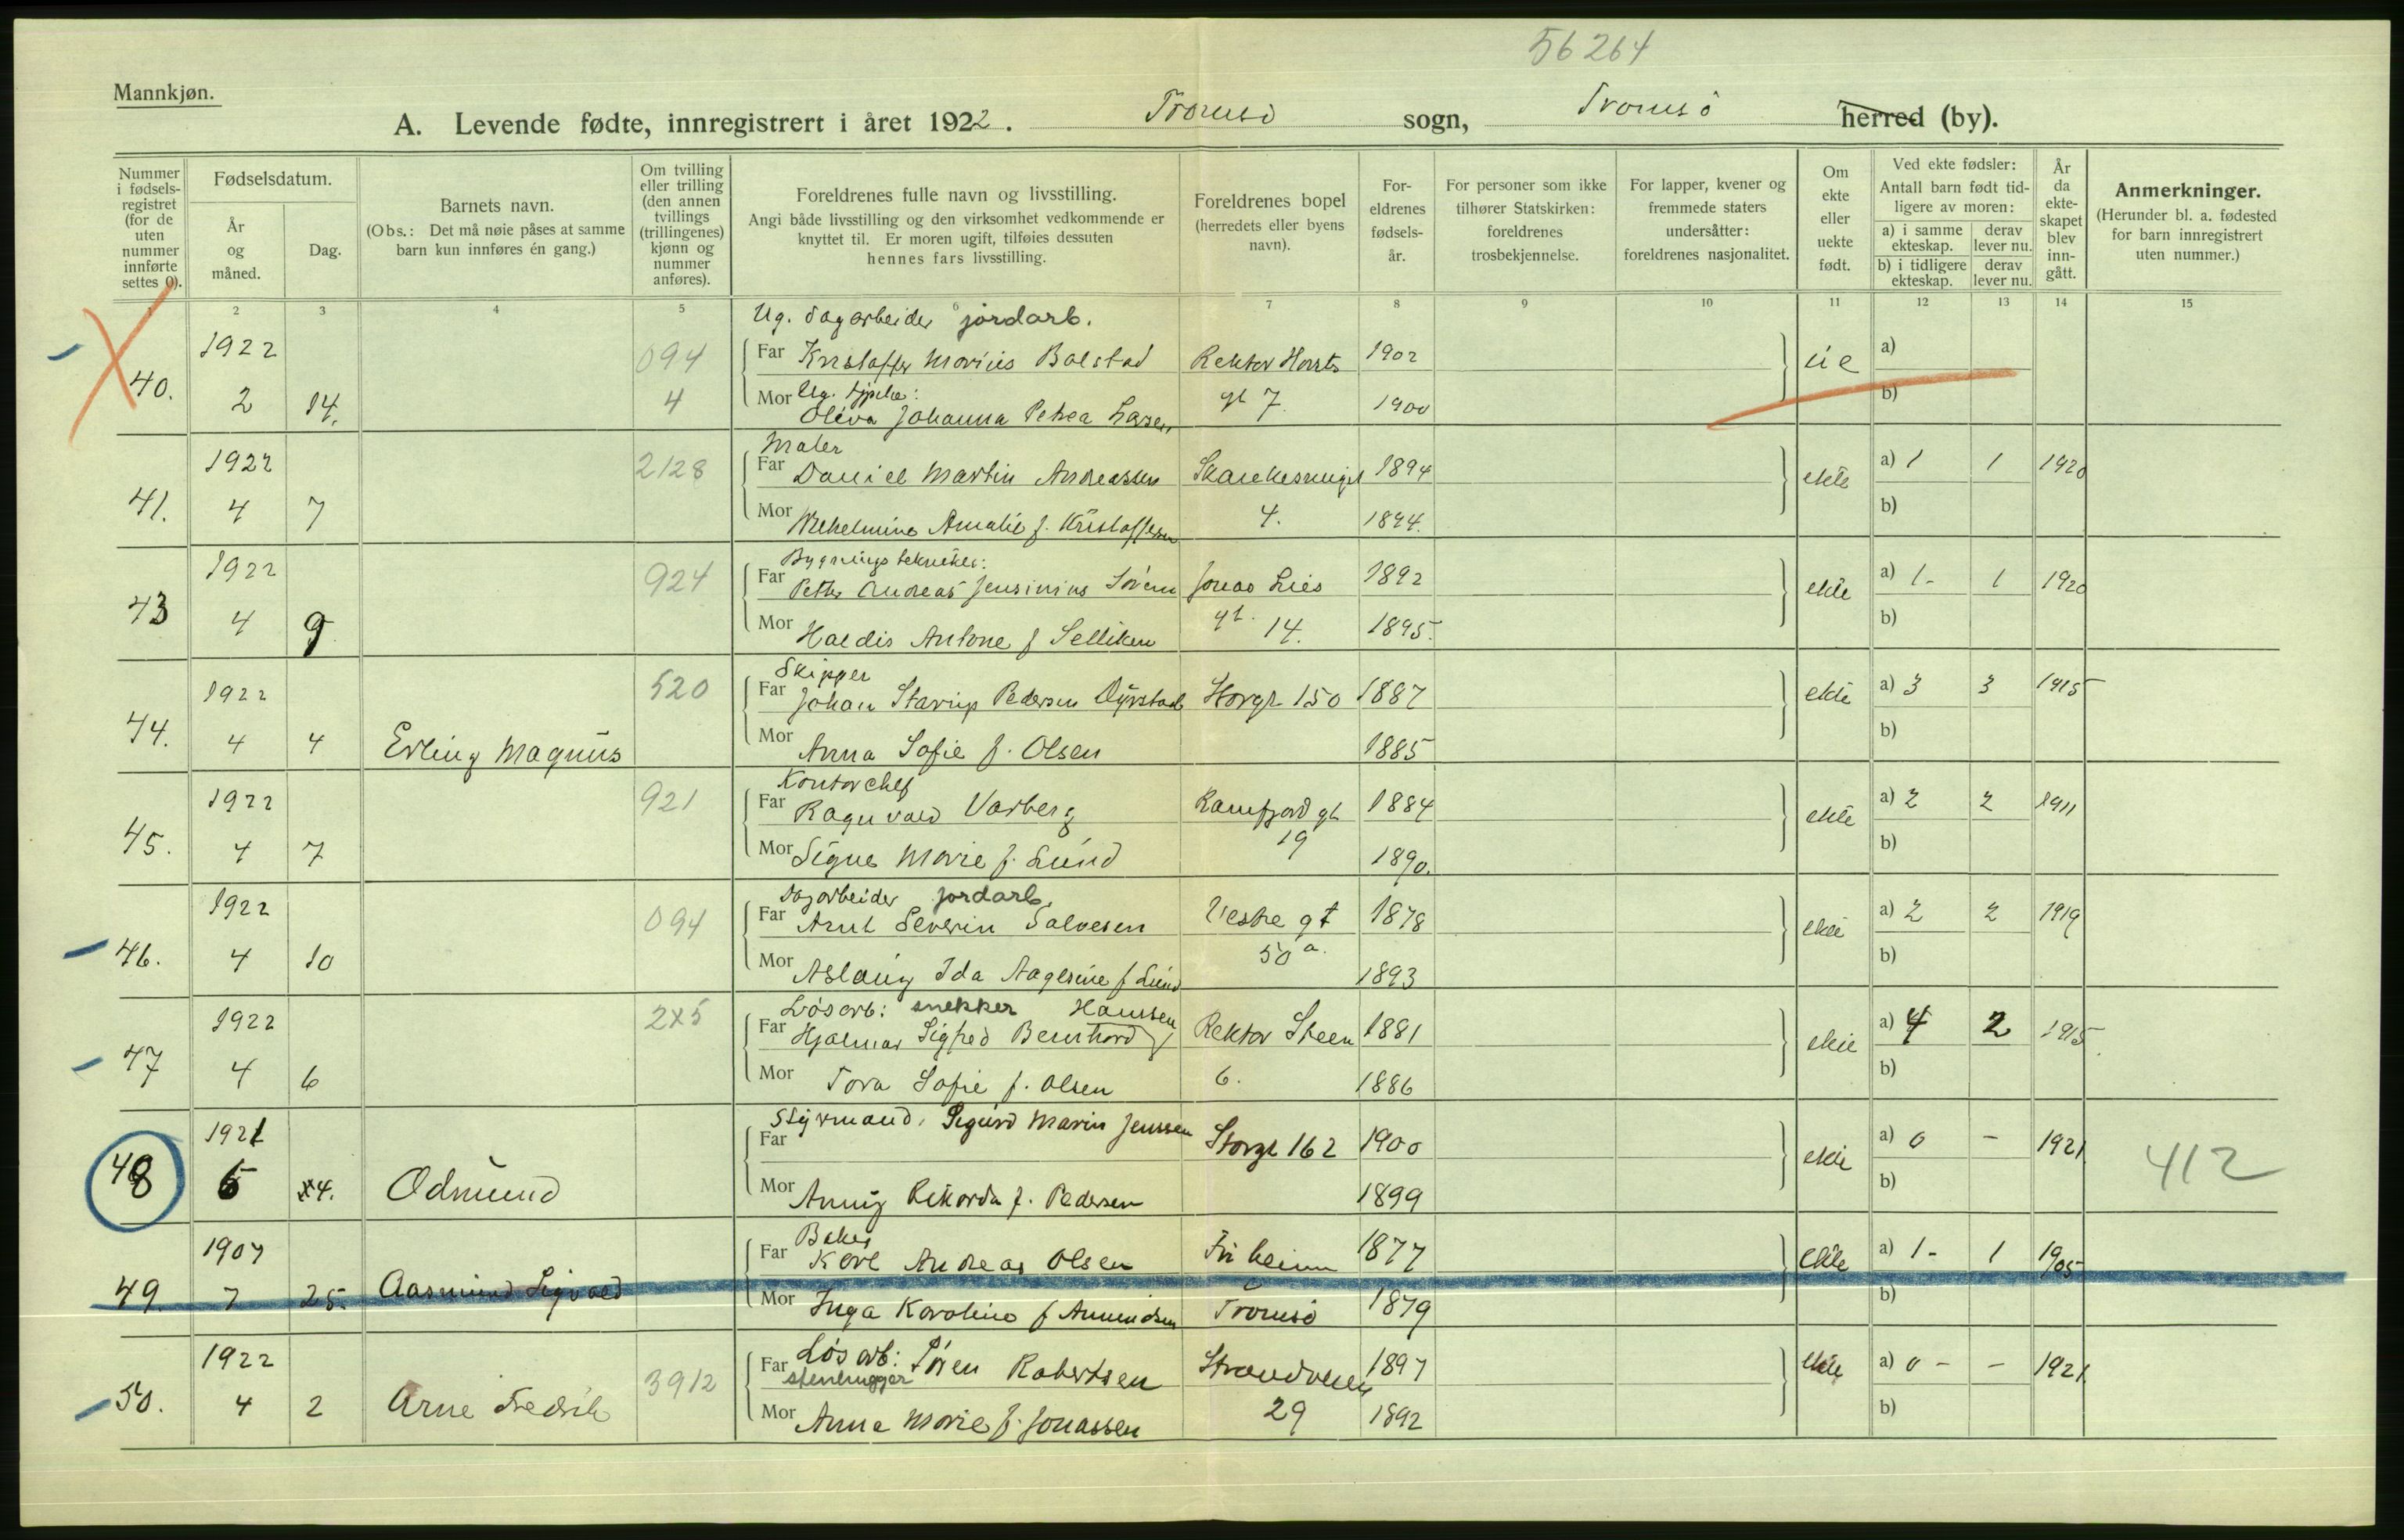 56264
Mannkjøn.
A. Levende fødte, innregistrert i året 1922. Tromsö sogn, Tromsö herred (by).
Nummer i fødsels-registret (for de uten nummer innførte settes 0).
Fødselsdatum.
År og måned.
Dag.
Barnets navn.
(Obs.: Det må nøie påses at samme barn kun innføres én gang.)
Om tvilling eller trilling (den annen tvillings (trillingenes) kjønn og nummer anføres).
Foreldrenes fulle navn og livsstilling.
Angi både livsstilling og den virksomhet vedkommende er knyttet til. Er moren ugift, tilføies dessuten hennes fars livsstilling.
Foreldrenes bopel (herredets eller byens navn).
For-eldrenes fødsels-år.
For personer som ikke tilhører Statskirken: foreldrenes trosbekjennelse.
For lapper, kvener og fremmede staters undersåtter: foreldrenes nasjonalitet.
Om ekte eller uekte født.
Ved ekte fødsler:
Antall barn født tid-ligere av moren:
a) i samme ekteskap.
derav lever nu.
b) i tidligere ekteskap.
derav lever nu.
År da ekte-skapet blev inn-gått.
Anmerkninger.
(Herunder bl. a. fødested for barn innregistrert uten nummer.)
1 2 3 4 5 6 7 8 9 10 11 12 13 14 15
Ug. dagarbeider jordarb.
1922 094 Far Kristoffer Marius Bolstad Rektor Horsts 1902 ue a)
40. 2 14. 4 Mor Ug. 
Oliva Johanna Petrea Larsen gt 7. 1900 b)
Maler
1922 2128 Far Daniel Martin Andreassen 1894 ekte a) 1 1 1920
41. 4 7 Mor Wilhelmine Amalie f. Kristoffersen 4. 1894. b)
Bygningstekniker:
1922 924 Far Petter Andreas Jensinius Jonas Lies 1892 ekte a) 1- 1 1920
43 4 9 Mor Haldis Antone f Selliken gt. 14. 1895. b)
Skipper
1922 520 Far Johan Starup Pedersen Dyrstad Storgt 150 1887 ekte a) 3 3 1915
44. 4 4 Erling Magnus Mor Anna Sofie f. Olsen 1885 b)
Kontorchef
1922 921 Far Ragnvald Varberg Ramfjord gt 1884 ekte a) 2 2 1911
45. 4 7 Mor Signe Marie f. Lund 19 1890. b)
Dagarbeider jordarb.
1922 094 Far Arnt Severin Salvesen Vestre gt 1878 ekte a) 2 2 1919
46. 4 10 Mor Aslaug Ida Aagesine f Lund 50 a. 1893 b)
Løsarb: snekker Hanssen
1922 2x5 Far Hjalmar Sigfred Bernhard Rektor Steen 1881 ekte a) 4 2 1915
47 4 6 Mor Tora Sofie f. Olsen 6. 1886 b)
Styrmand, Sigurd Marin Jenssen
1921 Far Storgt 162 1900 ekte a) 0 - 1921 412
48 6 4. Odmund Mor Annig Rikarda f. Pedersen 1899 b)
Baker
1907 Far Karl Andreas Olsen Friheim 1877 ekte a) 1- 1 1905
49. 7 25. Aasmund Sigvald Mor Inga Karoline f Amundsen Tromsö 1879 b)
1922 3912 Far Løsarb: Sören Robertsen Strandveien 1897 ekte a) 0 - - 1921
stenhugger
50. 4 2 Arne Fredrik Mor Anna Marie f. Jonassen 29 1892 b)